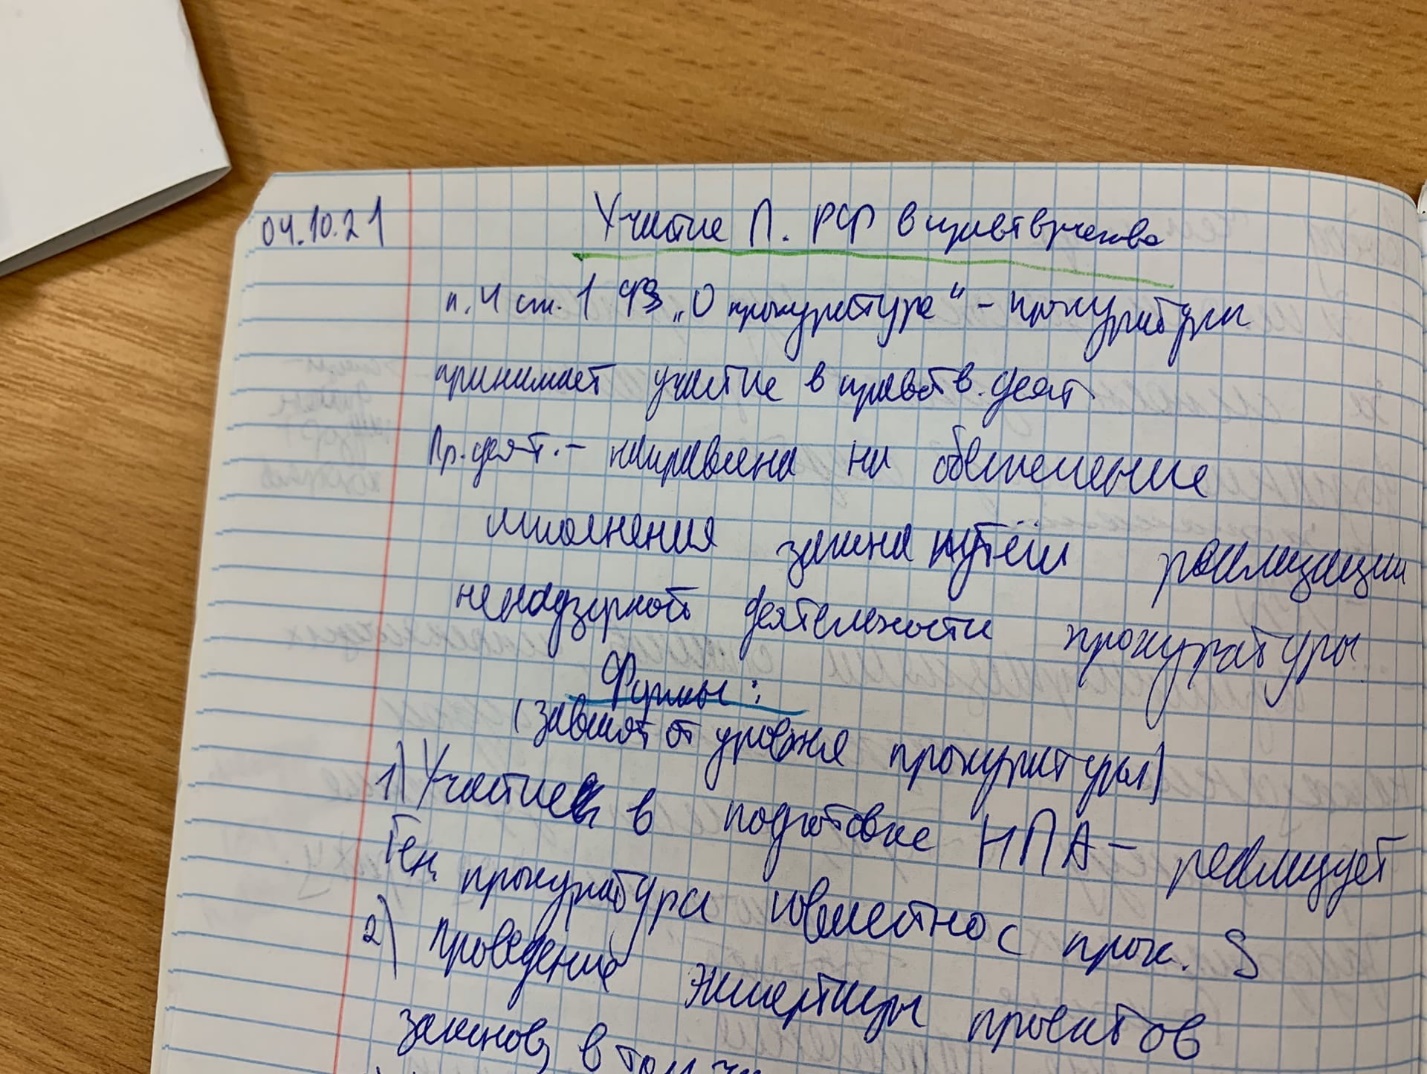 04.10.21
Участие П. РФ в правтврчества
п. 4 ст. 1 ФЗ „О прокуратуре“ – прокуратура
принимает участие в правотв. деят
Пр. деят. – направлена на обеспечение
исполнения закона путём реализации
ненадзорной деятельности прокуратуры
Формы:
(зависят от уровня прокуратуры)
1) Участие в подготовке НПА – реализует
Ген. прокуратура совместно с прок. S
2) Проведение экспертизы проектов
законов, в том чи